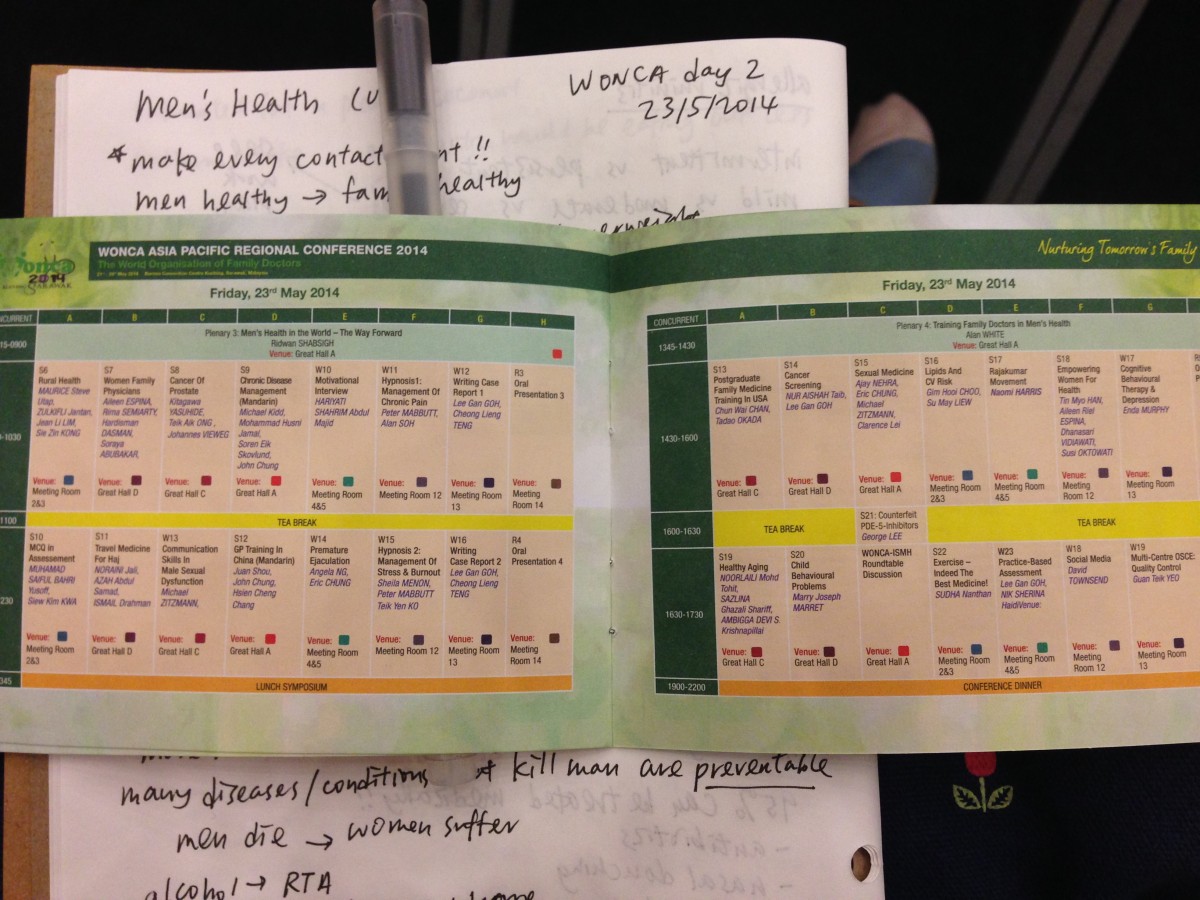 Men's Health
WONCA day 2
23/5/2014
* make every contact !!
men healthy → healthy
Wonca
2014
WONCA ASIA PACIFIC REGIONAL CONFERENCE 2014
The World Organisation of Family Doctors
Friday, 23rd May 2014
A B C D E F G H
Plenary 3: Men's Health in the World – The Way Forward
Ridwan SHABSIGH
Venue: Great Hall A
S6
Rural Health
MAURICE Steve
Utap,
ZULKIFLI Jantan,
Jean Li LIM,
Sie Zin KONG
Venue:
Meeting Room
2&3
S7
Women Family
Physicians
Aileen ESPINA,
Rima SEMIARTY,
Hardisman
DASMAN,
Soraya
ABUBAKAR,
Venue:
Great Hall D
S8
Cancer Of
Prostate
Kitagawa
YASUHIDE,
Teik Aik ONG ,
Johannes VIEWEG
Venue:
Great Hall C
S9
Chronic Disease
Management
(Mandarin)
Michael Kidd,
Mohammad Husni
Jamal,
Soren Eik
Skovlund,
John Chung
Venue:
Great Hall A
W10
Motivational
Interview
HARIYATI
SHAHRIM Abdul
Majid
Venue:
Meeting Room
4&5
W11
Hypnosis1:
Management Of
Chronic Pain
Peter MABBUTT,
Alan SOH
Venue:
Meeting Room 12
W12
Writing Case
Report 1
Lee Gan GOH,
Cheong Lieng
TENG
Venue:
Meeting Room
13
R3
Oral
Presentation 3
Venue:
Meeting
Room 14
TEA BREAK
S10
MCQ in
Assessement
MUHAMAD
SAIFUL BAHRI
Yusoff,
Siew Kim KWA
Venue:
Meeting Room
2&3
S11
Travel Medicine
For Haj
NORAINI Jali,
AZAH Abdul
Samad,
ISMAIL Drahman
Venue:
Great Hall D
W13
Communication
Skills In
Male Sexual
Dysfunction
Michael
ZITZMANN,
Venue:
Great Hall C
S12
GP Training In
China (Mandarin)
Juan Shou,
John Chung,
Hsien Cheng
Chang
Venue:
Great Hall A
W14
Premature
Ejaculation
Angela NG,
Eric CHUNG
Venue:
Meeting Room
4&5
W15
Hypnosis 2:
Management Of
Stress & Burnout
Sheila MENON,
Peter MABBUTT
Teik Yen KO
Venue:
Meeting Room 12
W16
Writing
Case Report 2
Lee Gan GOH,
Cheong Lieng
TENG
Venue:
Meeting Room
13
R4
Oral
Presentation 4
Venue:
Meeting
Room 14
LUNCH SYMPOSIUM
Nurturing Tomorrow's Family
Friday, 23rd May 2014
CONCURRENT A B C D E F G
1345-1430
Plenary 4: Training Family Doctors in Men's Health
Alan WHITE
Venue: Great Hall A
1430-1600
S13
Postgraduate
Family Medicine
Training In USA
Chun Wai CHAN,
Tadao OKADA
Venue:
Great Hall C
S14
Cancer
Screening
NUR AISHAH Taib,
Lee Gan GOH
Venue:
Great Hall D
S15
Sexual Medicine
Ajay NEHRA,
Eric CHUNG,
Michael
ZITZMANN,
Clarence Lei
Venue:
Great Hall A
S16
Lipids And
CV Risk
Gim Hooi CHOO,
Su May LIEW
Venue:
Meeting Room
2&3
S17
Rajakumar
Movement
Naomi HARRIS
Venue:
Meeting Room
4&5
S18
Empowering
Women For
Health
Tin Myo HAN,
Aileen Riel
ESPINA,
Dhanasari
VIDIAWATI,
Susi OKTOWATI
Venue:
Meeting
Room 12
W17
Cognitive
Behavioural
Therapy &
Depression
Enda MURPHY
Venue:
Meeting Room
13
1600-1630
TEA BREAK
S21: Counterfeit
PDE-5-Inhibitors
George LEE
TEA BREAK
1630-1730
S19
Healthy Aging
NOORLAILI Mohd
Tohit,
SAZLINA
Ghazali Shariff,
AMBIGGA DEVI S.
Krishnapillai
Venue:
Great Hall C
S20
Child
Behavioural
Problems
Marry Joseph
MARRET
Venue:
Great Hall D
WONCA-ISMH
Roundtable
Discussion
Venue:
Great Hall A
S22
Exercise –
Indeed The
Best Medicine!
SUDHA Nanthan
Venue:
Meeting Room
2&3
W23
Practice-Based
Assessment
Lee Gan GOH,
NIK SHERINA
HaidiVenue:
Venue:
Meeting Room
4&5
W18
Social Media
David
TOWNSEND
Venue:
Meeting
Room 12
W19
Multi-Centre OSCE:
Quality Control
Guan Teik YEO
Venue:
Meeting Room
13
1900-2200
CONFERENCE DINNER
many diseases/conditions * kill man are preventable
men die → women suffer
alcohol → RTA